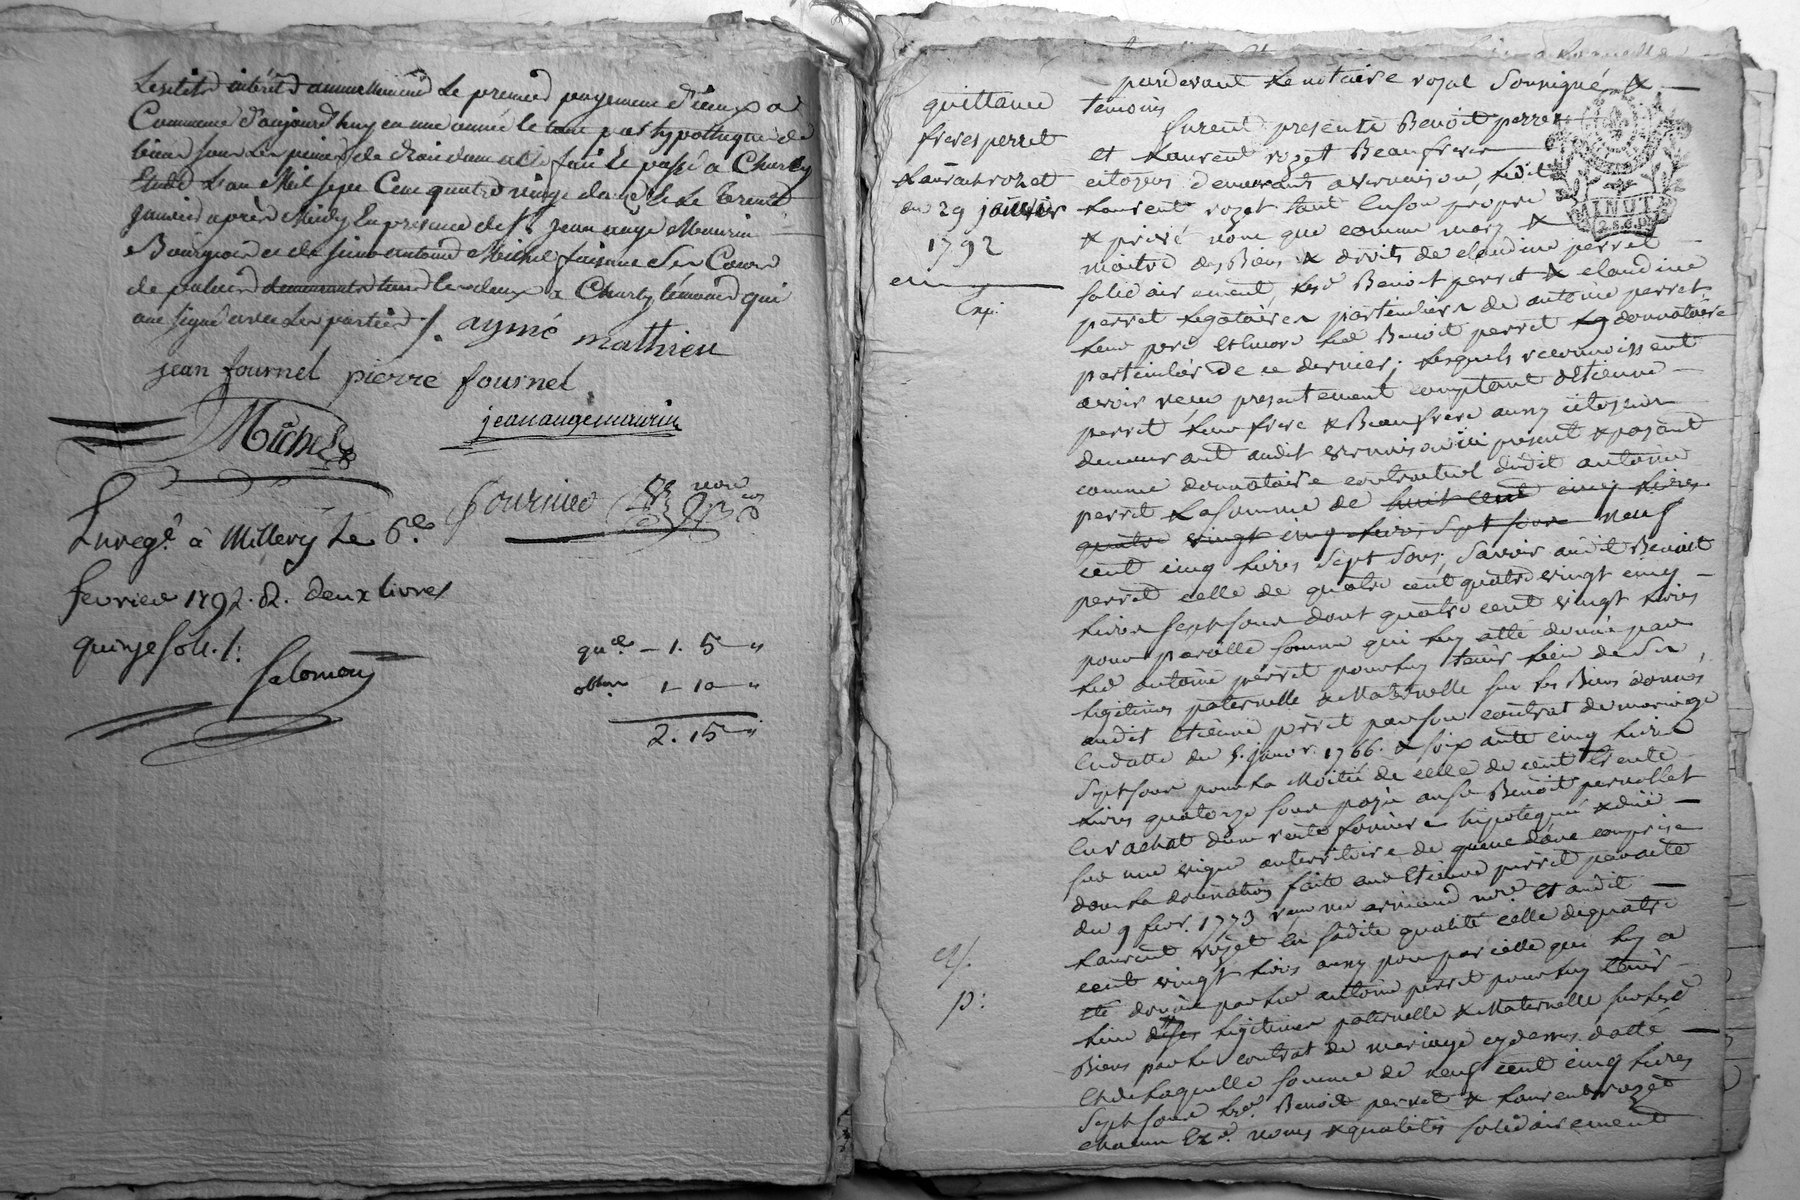 Lesdits intérêts annuellement le premier payement d'iceux a
Commencé d'aujourd'huy en une année le tout par hypotheque de
biens sous les peines de droit dont acte fait et passé a Charly
Etude L'an Mil sept Cent quatre vingt douze et le trente
janvier après Midy En présence de Sr. jean ange Maurin
Bourgeois et de simon antoine Michel
de palais demeurants tous les deux a Charly témoins qui
ont signé avec les parties /. aymé mathieu
jean fournel pierre fournel
jean ange maurin
Michel
fournier
Enregé. à Millery Le 6e.
fevrier 1792. R. deux livres
quinze sols. /:
Salomon
quce. – 1. 5 – "
obbon 1 – 10 – "
2. 15 – "
quittance
freres perret
Laurent rozet
du 29 janvier
1792
Exp.
pardevant Le notaire royal Soussigné, &
temoins
furent presents Benoit perret
et Laurent rozet Beaufrere
citoyens demeurants a vernaison, Ledit
Laurent rozet tant en son propre
& privé nom que comme mary &
maitre des Biens & droits de claudine perret
solidairement, lesd Benoit perret & claudine
perret Legataires particuliers de antoine perret
Leur pere et encore led Benoit perret donnataire
particulier de ce dernier; Lesquels reconnoissent
avoir reçu presentement comptant d'Etienne
perret Leur frere & Beaufrere aussy citoyen
demeurant audit vernaison ici présent & payant
comme donnataire contractuel dudit antoine
perret La somme de huit cent cinq Livres
quatre vingt cinq Livres Sept sous neuf
cent cinq Livres Sept Sous, Savoir audit Benoit
perret celle de quatre cent quatre vingt cinq
Livres sept sous dont quatre cent vingt Livres
pour pareille somme qui Luy a été donnée par
led antoine perret pour luy tenir Lieu de ses
Legitimes paternelle & Maternelle sur les Biens donnés
audit Etienne perret par son contrat de mariage
en datte du 5. janvr. 1766. & soixante cinq Livres
Sept sous pour La Moitié de celle de cent trente
Livres quatorze sous payée au sr Benoit
en rachat d'une rente fonciere hipotequée & düe
sur une vigne au territoire de comprise
dans La donnation faite aud Etienne perret par acte
du 9 fevr. 1773 reçu me armand nre. et audit
Laurent rozet en sadite qualité celle de quatre
cent vingt Livres aussy pour pareille qui luy a
été donnée par led antoine perret pour luy tenir
Lieu de ses Legitimes paternelle & Maternelle sur lesd
Biens par le contrat de mariage cy dessus datté
Et de Laquelle somme de neuf cent cinq Livres
Sept sous Led. Benoit perret & Laurent rozet
chacun ez d. noms & qualités solidairement
e/.
p:
MINUT